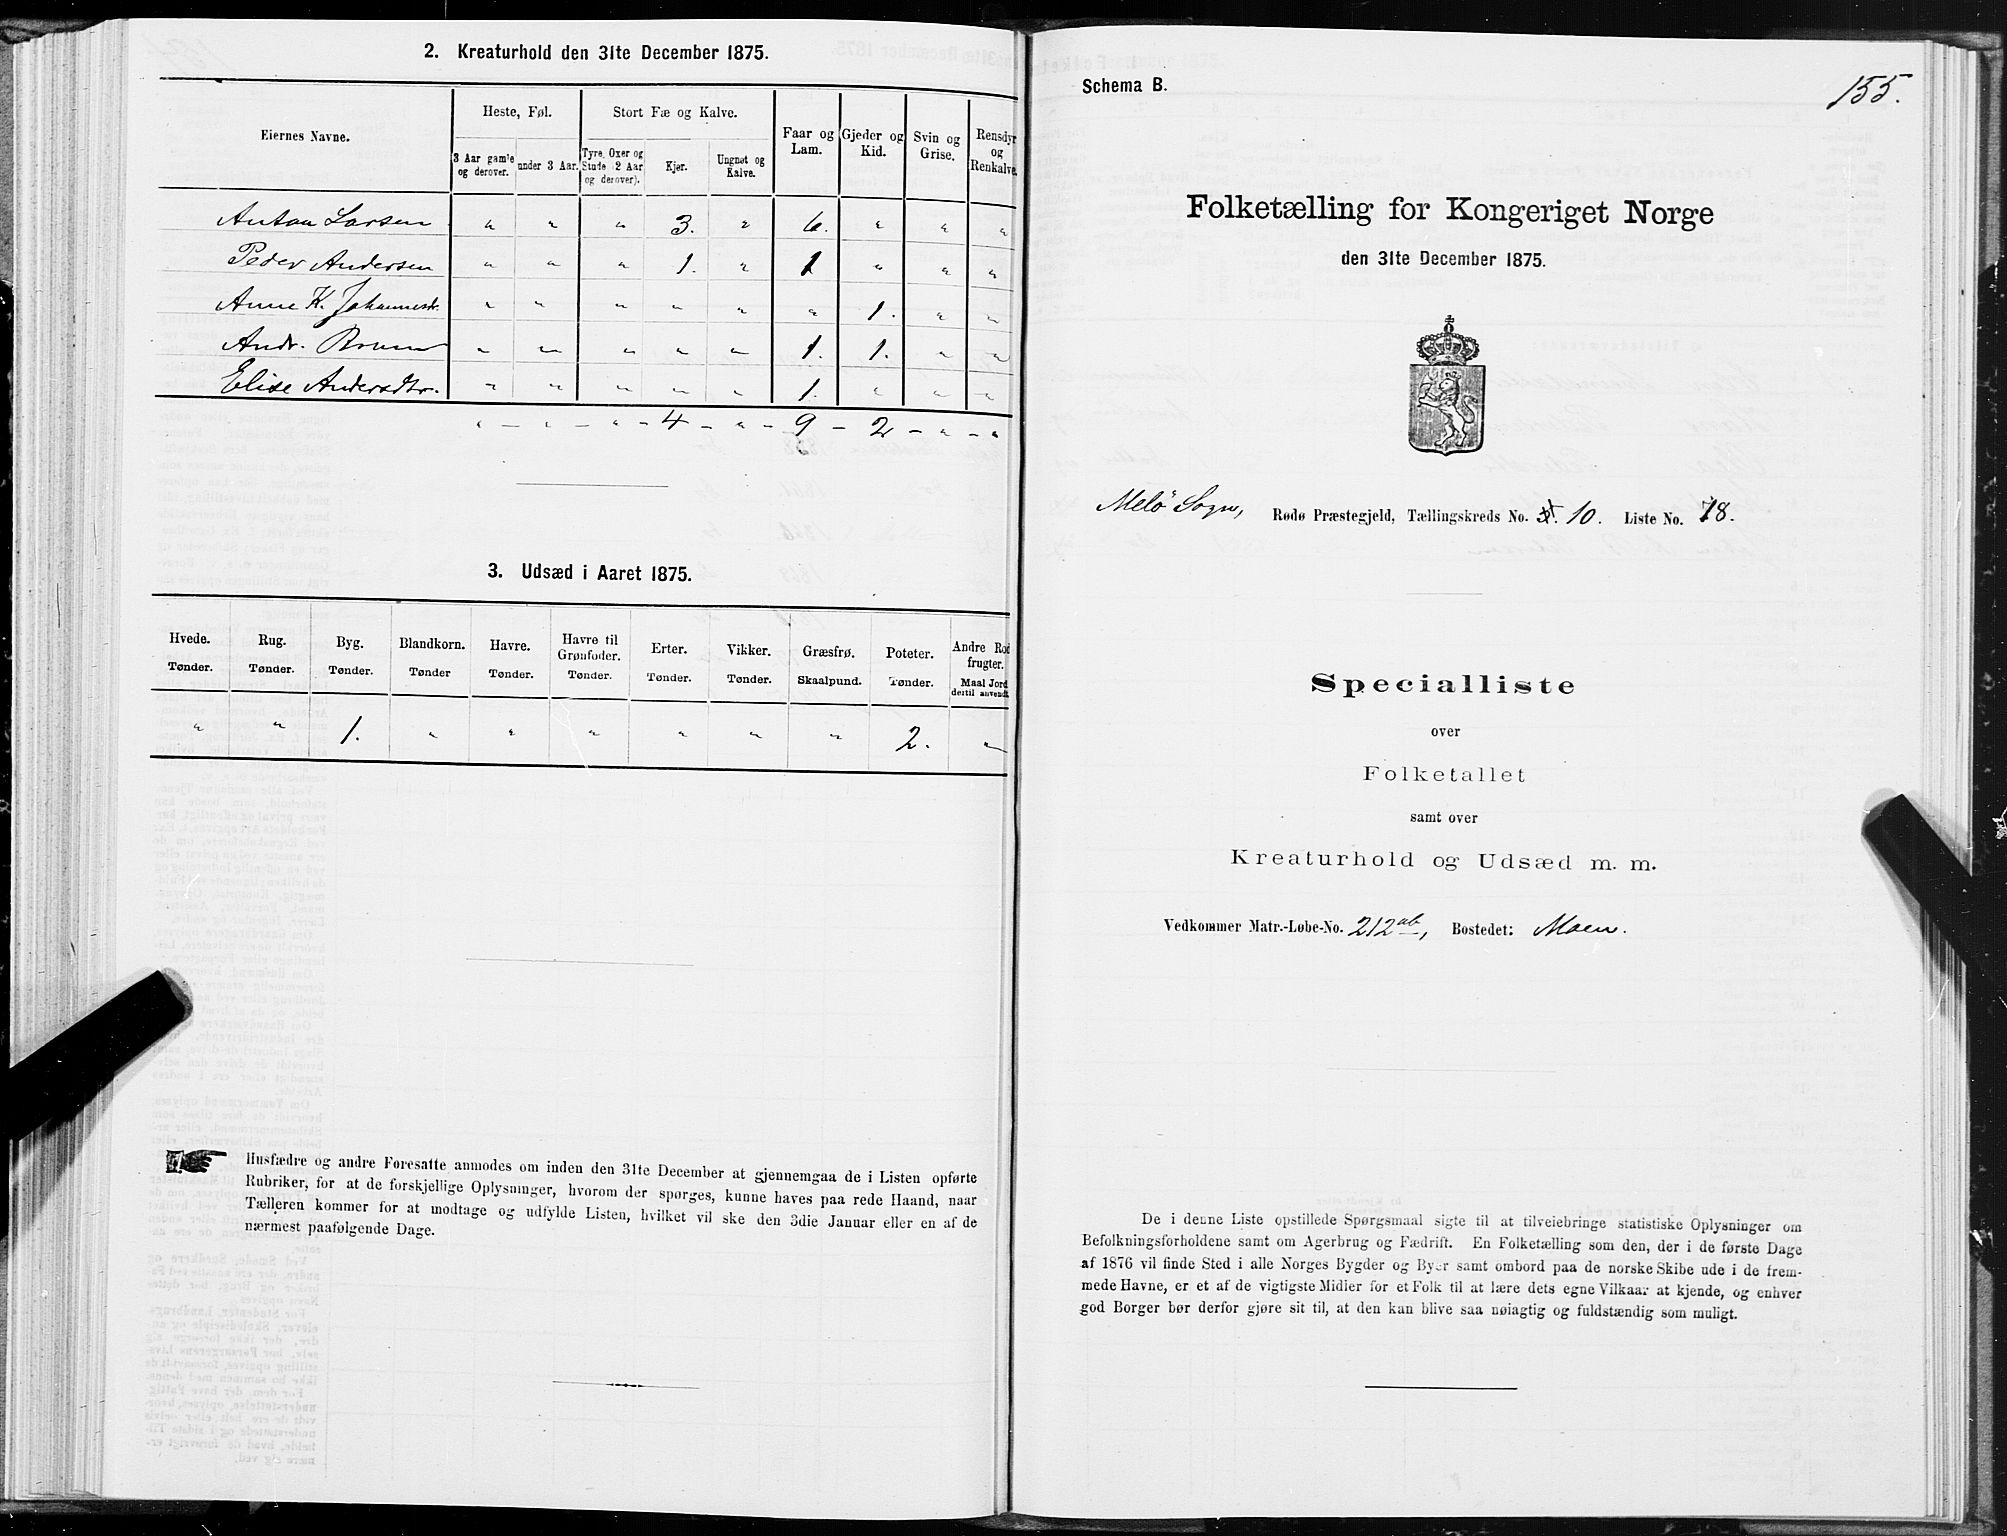 2. Kreaturhold den 31te December 1875.
Eiernes Navne. Heste, Føl. Stort Fæ og Kalve. Faar og Lam. Gjeder og Kid. Svin og Grise. Rensdyr og Renkalve.
3 Aar gamle og derover. under 3 Aar. Tyre, Oxer og Stude (2 Aar og derover). Kjør. Ungnøt og Kalve.
Anton Larsen " " " 3. " 6. " " "
Peder Andersen " " " 1. " 1 " " "
Anne K. Johannesdr. " " " " " " 1. " "
Andr. Bruun " " " " " 1. 1. " "
Elise Andersdtr. " " " " " 1. " " "
" - " - " - 4 - " - 9 - 2 - " - "
3. Udsæd i Aaret 1875.
Hvede. Rug. Byg. Blandkorn. Havre. Havre til Grønfoder. Erter. Vikker. Græsfrø. Poteter. Andre Rodfrugter.
Tønder. Tønder. Tønder. Tønder Tønder. Tønder. Tønder. Tønder. Skaalpund. Tønder. Maal Jord dertil anvendt
" " 1. " " " " " " 2. "
Husfædre og andre Foresatte anmodes om inden den 31te December at gjennemgaa de i Listen opførte
Rubriker, for at de forskjellige Oplysninger, hvorom der spørges, kunne haves paa rede Haand, naar
Tælleren kommer for at modtage og udfylde Listen, hvilket vil ske den 3die Januar eller en af de
nærmest paafølgende Dage.
Schema B.
155.
Folketælling for Kongeriget Norge
den 31te December 1875.
Melö Sogn, Rødø Præstegjeld, Tællingskreds No. 10. Liste No. 78.
Specialliste
over
Folketallet
samt over
Kreaturhold og Udsæd m. m.
Vedkommer Matr.-Løbe-No. 212ab, Bostedet: Moen.
De i denne Liste opstillede Spørgsmaal sigte til at tilveiebringe statistiske Oplysninger om
Befolkningsforholdene samt om Agerbrug og Fædrift. En Folketælling som den, der i de første Dage
af 1876 vil finde Sted i alle Norges Bygder og Byer samt ombord paa de norske Skibe ude i de frem-
mede Havne, er et af de vigtigste Midler for et Folk til at lære dets egne Vilkaar at kjende, og enhver
god Borger bør derfor gjøre sit til, at den kan blive saa nøiagtig og fuldstændig som muligt.